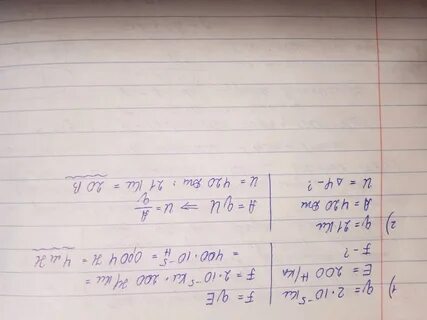 1) q = 2·10⁻⁵ Кл | F = qE
E = 200 Н/Кл | F = 2·10⁻⁵ Кл · 200 Н/Кл =
F - ? | = 400·10⁻⁵ Н = 0,004 Н = 4 мН
2) q = 21 Кл
A = 420 Дж | A = qU ⇒ U = A/q
U = Δφ - ? | U = 420 Дж : 21 Кл = 20 В